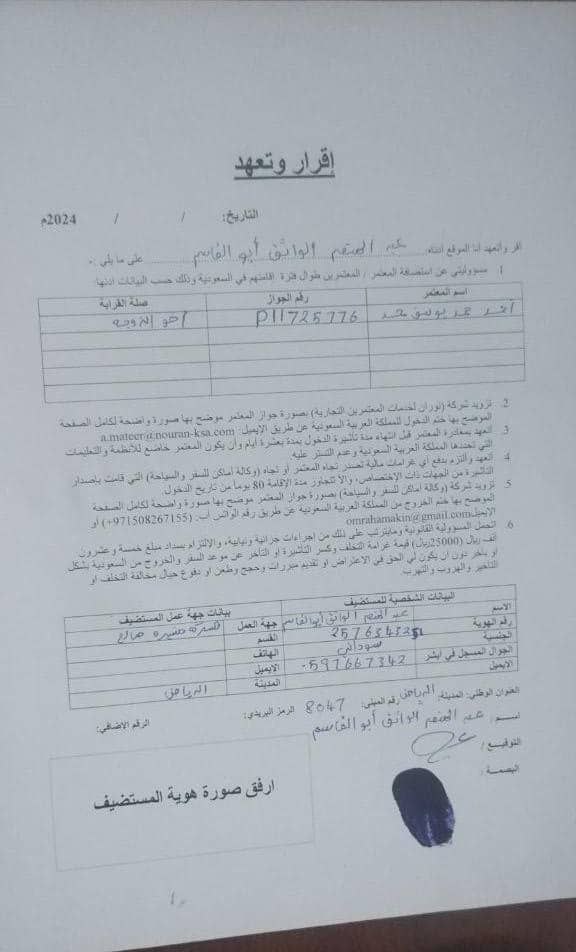 إقرار وتعهد
التاريخ: / / 2024م
اقر واتعهد انا الموقع ادناه عبد المنعم الواثق أبو القاسم على ما يلي :-
1. مسؤوليتي عن استضافة المعتمر / المعتمرين طوال فترة اقامتهم في السعودية وذلك حسب البيانات ادنها:
اسم المعتمر رقم الجواز صلة القرابة
أحمد حمد يوسف حمد P11725776 أخو الزوجه
2. تزويد شركة (نوران لخدمات المعتمرين التجارية) بصورة جواز المعتمر موضح بها صورة واضحة لكامل الصفحة
الموضح بها ختم الدخول للمملكة العربية السعودية عن طريق الايميل: a.mateer@nouran-ksa.com
3. أتعهد بمغادرة المعتمر قبل انتهاء مدة تأشيرة الدخول بمدة بعشرة أيام وأن يكون المعتمر خاضع للأنظمة والتعليمات
التي تحددها المملكة العربية السعودية وعدم التستر عليه
4. أتعهد والتزم بدفع أي غرامات مالية تصدر تجاه المعتمر أو تجاه (وكالة أماكن للسفر والسياحة) التي قامت بإصدار
التأشيرة من الجهات ذات الاختصاص، والا تتجاوز مدة الإقامة 80 يوما من تاريخ الدخول.
5. تزويد شركة (وكالة أماكن للسفر والسياحة) بصورة جواز المعتمر موضح بها صورة واضحة لكامل الصفحة
الموضح بها ختم الخروج من المملكة العربية السعودية عن طريق رقم الواتس اب: (971508267155+) أو
الايميل omrahamakin@gmail.com
6. اتحمل المسؤولية القانونية ومايترتب على ذلك من إجراءات جزائية ونيابية، والإلتزام بسداد مبلغ خمسة وعشرون
ألف ريال (25000ريال) قيمة غرامة التخلف وكسر التأشيرة أو التاخر عن موعد السفر والخروج من السعودية بشكل
أو بآخر دون أن يكون لي الحق في الاعتراض او تقديم مبررات وحجج وطعن او دفوع حيال مخالفة التخلف او
التأخير والهروب والتهرب
البيانات الشخصية للمستضيف بيانات جهة عمل المستضيف
الاسم عبد المنعم الواثق أبو القاسم جهة العمل
رقم الهوية القسم
الجنسية سوداني الهاتف
الجوال المسجل في ابشر 0597667342 الايميل
الايميل المدينة الرياض
العنوان الوطني: المدينة: الرياض رقم المبنى: 8047 الرمز البريدي: الرقم الاضافي:
اسم: عبد المنعم الواثق أبو القاسم
التوقيع:
البصمة:
ارفق صورة هوية المستضيف